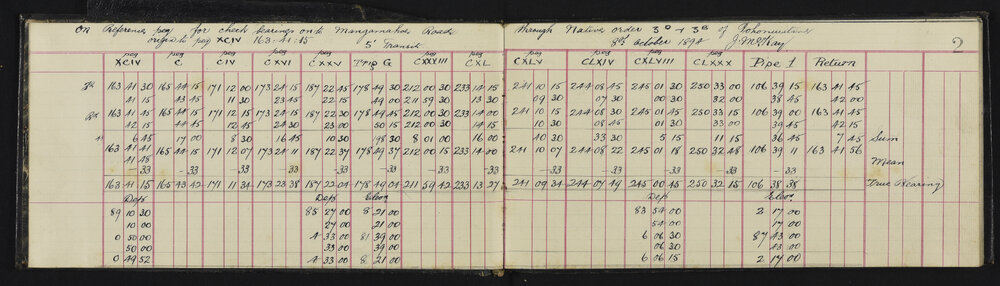 On Reference peg for check bearings onto Mangamahoe Road through Native order 3D + 3E of Pohonuiatane
origin to peg XCIV 163.41.15 5" Transit 8th October 1898 J. McKay 2
peg peg peg peg peg peg peg peg peg peg peg
XCIV C CIV CXVI CXXV Trig G CXXXIII CXL CXLV CLXIV CXLVIII CLXXX Pipe 1 Return
163 41 30 165 44 15 171 12 00 173 24 15 187 22 45 178 49 30 212 00 30 233 14 15 241 10 15 244 08 45 245 01 30 250 33 00 106 39 15 163 41 45
41 15 43 45 11 30 23 45 22 15 49 00 211 59 30 13 30 09 30 07 30 00 30 32 00 38 45 42 00
163 41 45 165 44 45 171 12 15 173 24 15 187 22 30 178 49 45 212 00 30 233 14 00 241 10 15 244 08 30 245 01 45 250 33 15 106 39 00 163 41 45
42 15 44 45 12 45 24 30 23 00 50 15 212 00 30 14 15 10 30 08 45 01 30 33 00 39 45 42 15
6 45 17 00 8 30 16 45 10 30 98 30 8 01 00 16 00 40 30 33 30 5 15 11 15 36 45 7 45 Sum
163 41 41 165 44 15 171 12 07 173 24 11 187 22 37 178 49 37 212 00 15 233 14 00 241 10 07 244 08 22 245 01 18 250 32 48 106 39 11 163 41 56 Mean
41 48
-33 -33 -33 -33 -33 -33 -33 -33 -33 -33 -33 -33
163 41 15 165 43 42 171 11 34 173 23 38 187 22 04 178 49 04 211 59 42 233 13 27 241 09 34 244 07 49 245 00 45 250 32 15 106 38 38 True Bearing
Dep Dep Elev Dep Elev
89 10 30 85 27 00 8 21 00 83 54 00 2 17 00
10 00 27 00 21 00 54 00 17 00
0 50 00 4 33 00 81 39 00 6 06 30 87 43 00
50 00 33 00 39 00 06 30 43 00
0 49 52 4 33 00 8 21 00 6 06 15 2 17 00